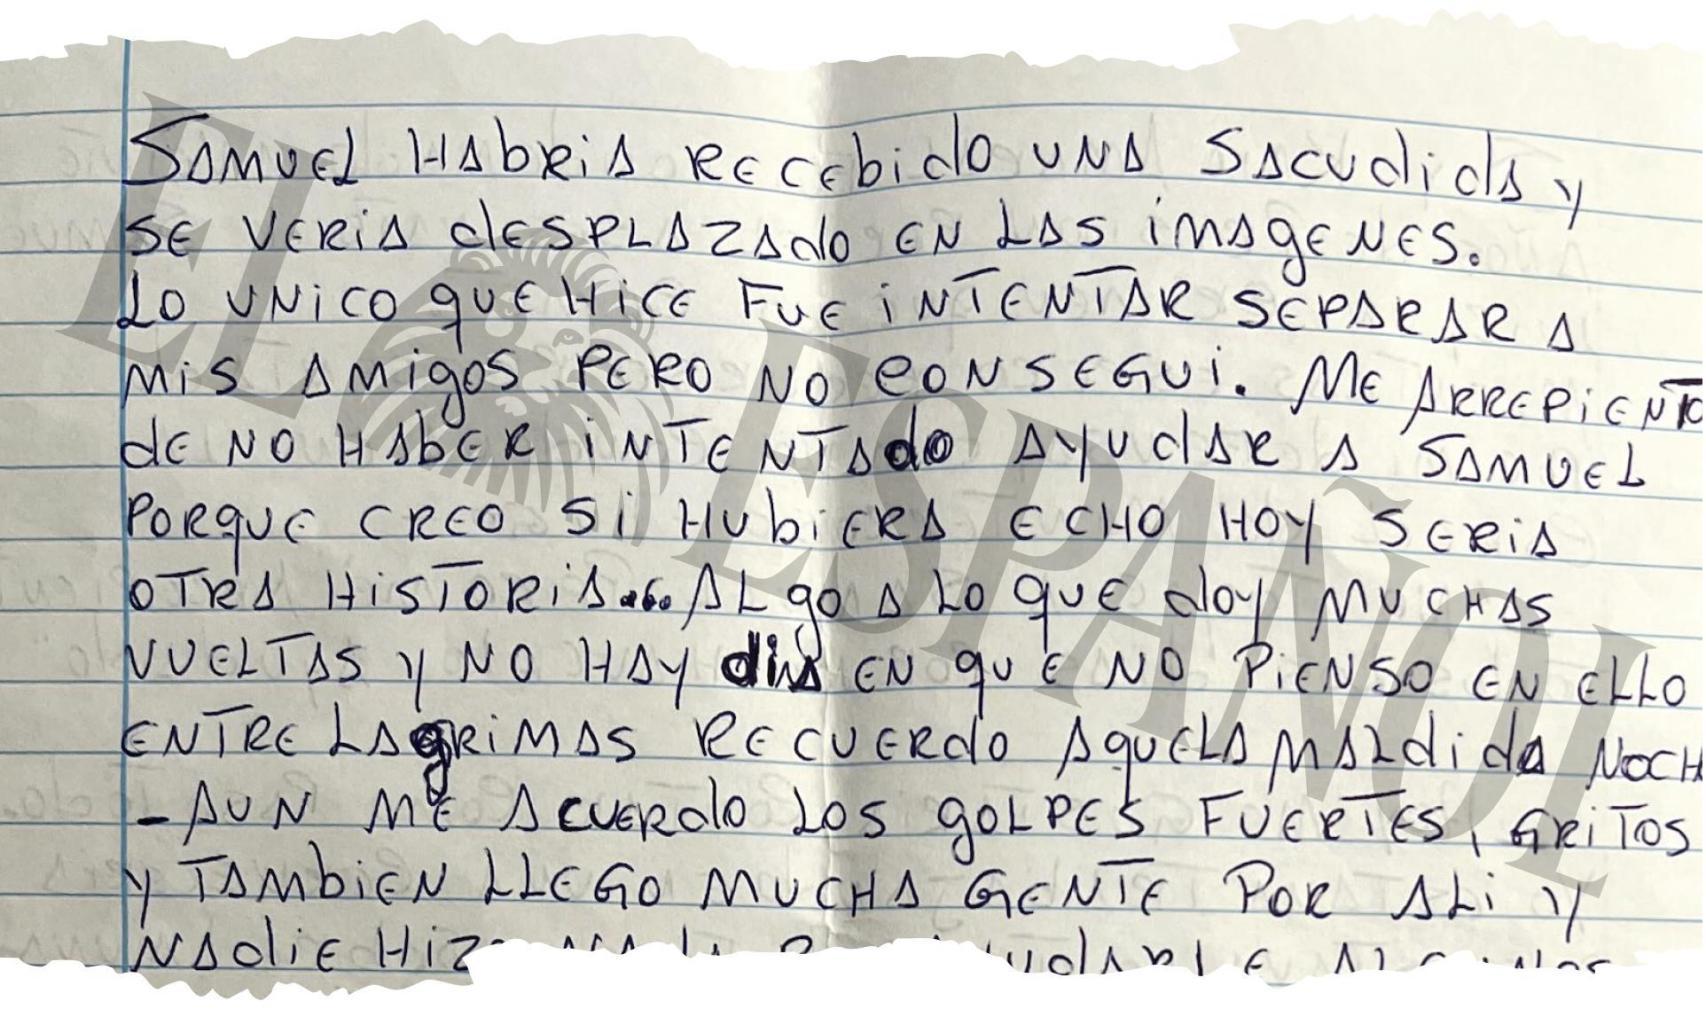 SAMUEL HAbRiA RECEbido UNA SACUdidA y
SE VERiA dESPLAZAdo EN LAS iMAgENES.
LO UNiCO qUE HiCE FUE iNTENTAR SEPARAR A
MiS AMigOS PERO NO CONSEGUi. ME ARREPiENTO
dE NO HAbER iNTENTAdo AyUdAR A SAMUEL
PORqUE CREO Si HUbiERA ECHO HOY SERiA
OTRA HiSTORiA... ALgO A LO qUE doy MUCHAS
VUELTAS y NO HAY diA EN qUE NO PiENSO EN ELLO
ENTRE LAgRiMAS RECUERdo AqUELA MALdidA NOCH
- AUN ME ACUERdo LOS gOLPES FUERTES, GRiTOS
y TAMbiEN LLEGO MUCHA GENTE POR ALi y
NAdiE HiZ
EL ESPAÑOL